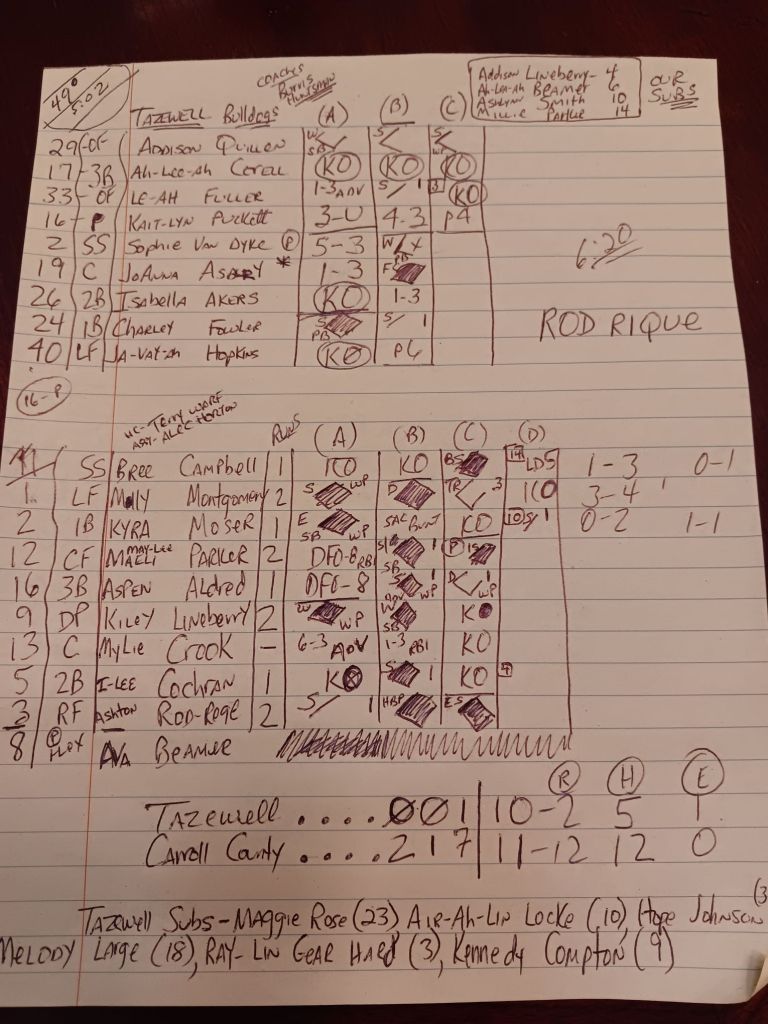 49° 5:02
COACHES
BURRIS
HUNTSMAN
TAZEWELL Bulldogs (A) (B) (C)
Addison Lineberry - 4
Ah-Lea-Ah BEAMER 6
Ashlynn Smith 10
Millie PARKER 14
OUR SUBS
29-OF ADDISON QUILLEN W SB S S WP
17-3B Ah-Lee-Ah COVELL KO KO KO
33-OF LE-AH FULLER 1-3 ADV S 1 3 KO
16-P KAIT-LYN PUCKETT 3-U 4-3 P4
2 SS Sophie Van DYKE (P) 5-3 W PB
19 C JoAnna ASBURY * 1-3
26 2B Isabella AKERS KO 1-3
24 1B CHARLEY FOWLER S PB S 1
40 LF JA-VAY-ah Hopkins KO P6
6:20
ROD RIQUE
16-P
HC-Terry WARF
ASST-ALEC HORTON
RUNS (A) (B) (C) (D)
11 SS BREE CAMPBELL 1 KO KO BS 14 LD5 1-3 0-1
1 LF Molly Montgomery 2 S WP D TR 3 KO 3-4
2 1B KYRA MOSER 1 E SB WP SAC BUNT KO 10 S 1 0-2 1-1
12 CF MAELI MAY-LEE PARKER 2 DFO-8 RBI S 1 SB P
16 3B ASPEN Aldred 1 DFO-8 S 1 ADV WP D 1 WP
9 DP KILEY LINEBERRY 2 W WP W SB K
13 C MyLIE CROOK - 6-3 ADV 1-3 RBI KO
5 2B I-LEE COCHRAN 1 K S 1 KO 4
3 RF Ashton ROD-ROGE 2 S 1 HBP ES
8 (P) FLEX AVA BEAMER
(R) (H) (E)
TAZEWELL .... 0 0 1 10-2 5 1
CARROLL County .... 2 1 7 11-12 12 0
TAZEWELL Subs - MAGGIE ROSE (23), AIR-Ah-LIN LOCKE (10), Hope JOHNSON (3
MELODY LARGE (18), RAY-LIN GEAR HARD (3), KENNEDY COMPTON (9)